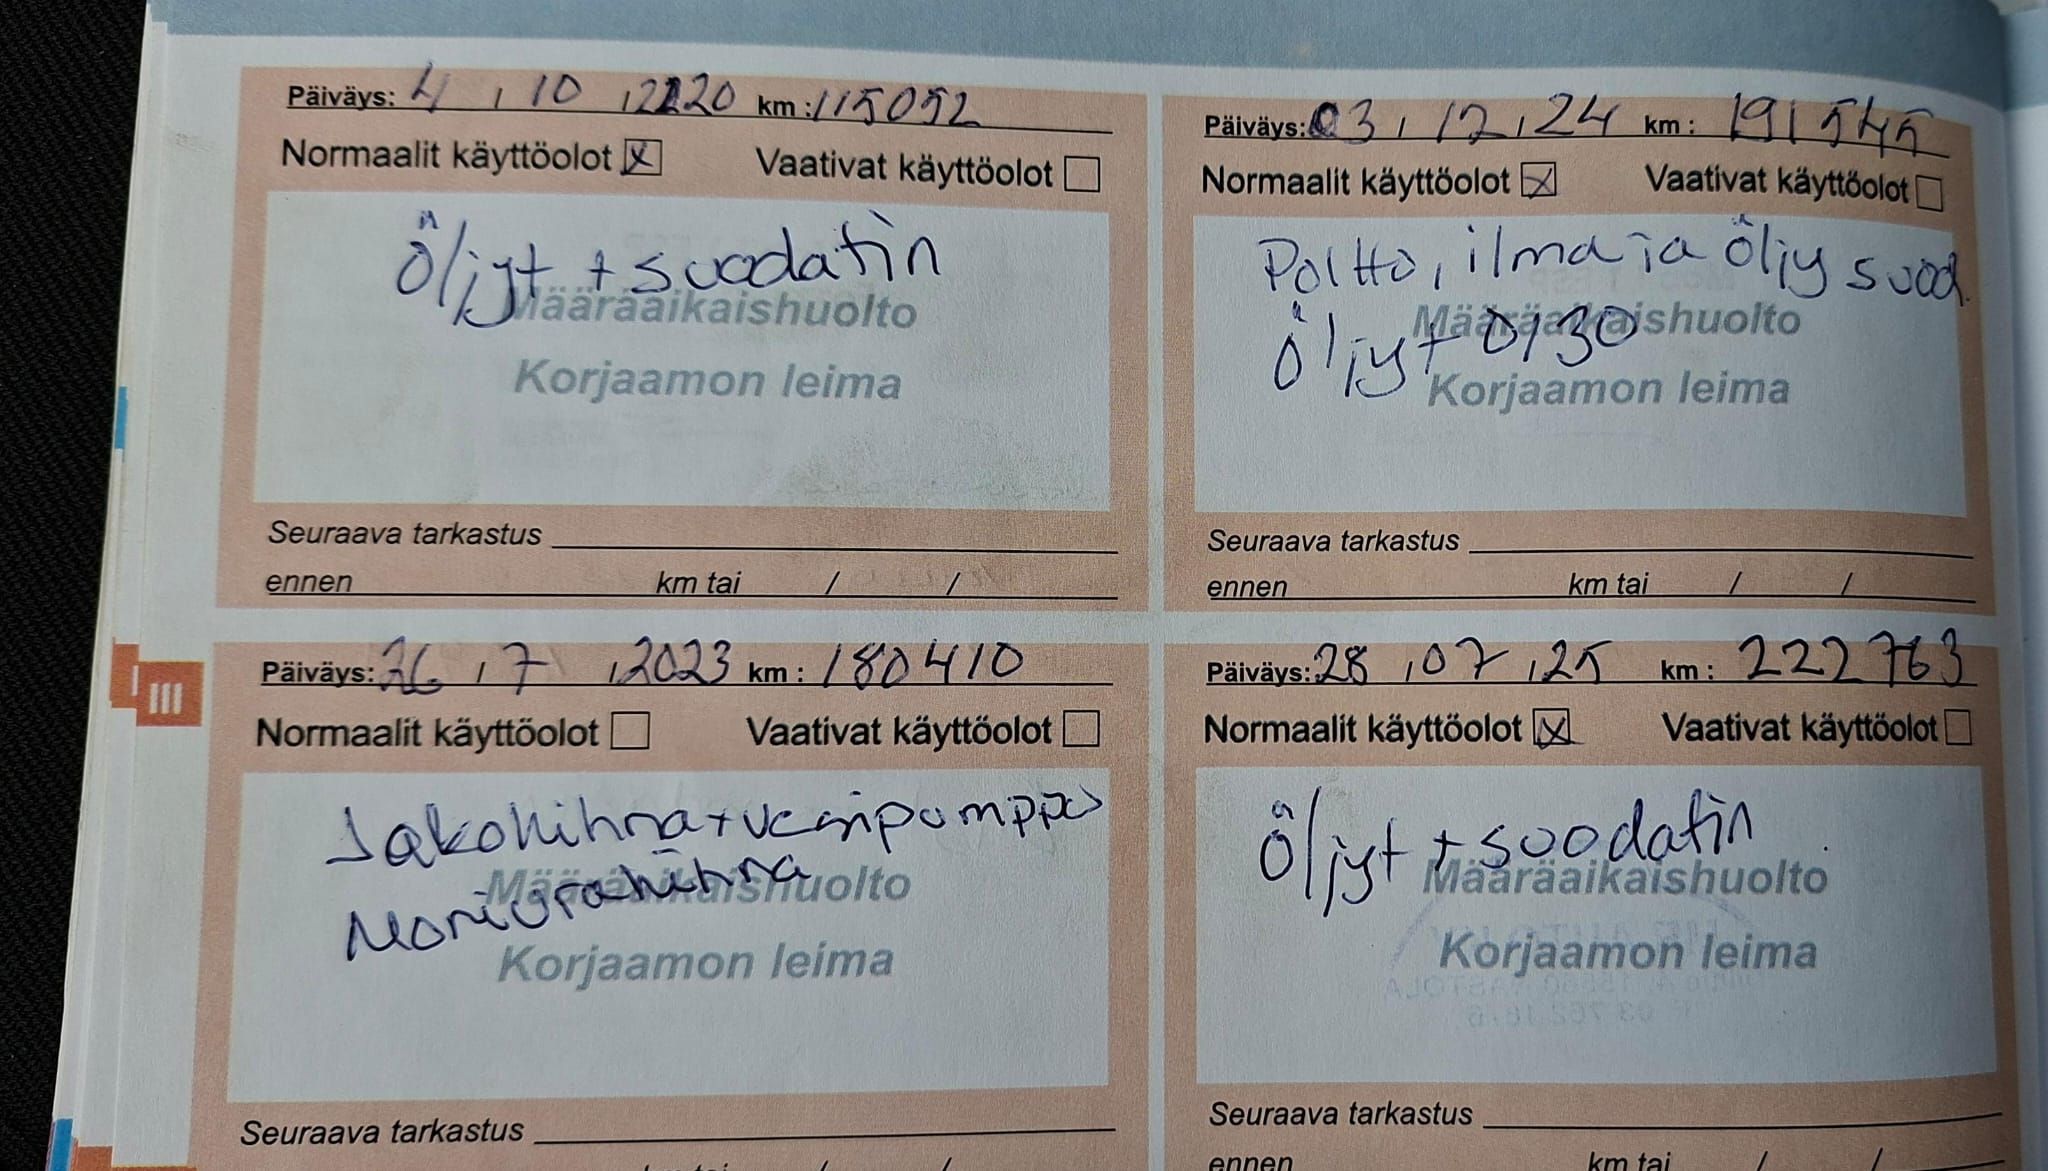 Päiväys: 4 / 10 / 2020 km : 115052
Normaalit käyttöolot X Vaativat käyttöolot
Öljyt + suodatin
Määräaikaishuolto
Korjaamon leima
Seuraava tarkastus
ennen km tai / /
Päiväys: 03 / 12 / 24 km : 191545
Normaalit käyttöolot X Vaativat käyttöolot
Poltto, ilma ja öljy suod.
Öljyt 0/30
Määräaikaishuolto
Korjaamon leima
Seuraava tarkastus
ennen km tai / /
III
Päiväys: 26 / 7 / 2023 km : 180410
Normaalit käyttöolot Vaativat käyttöolot
Jakohihna + vesipumppu
Moniurahihna
Määräaikaishuolto
Korjaamon leima
Seuraava tarkastus
km tai / /
Päiväys: 28 / 07 / 25 km : 222763
Normaalit käyttöolot X Vaativat käyttöolot
Öljyt + suodatin
Määräaikaishuolto
Korjaamon leima
Seuraava tarkastus
ennen km tai / /